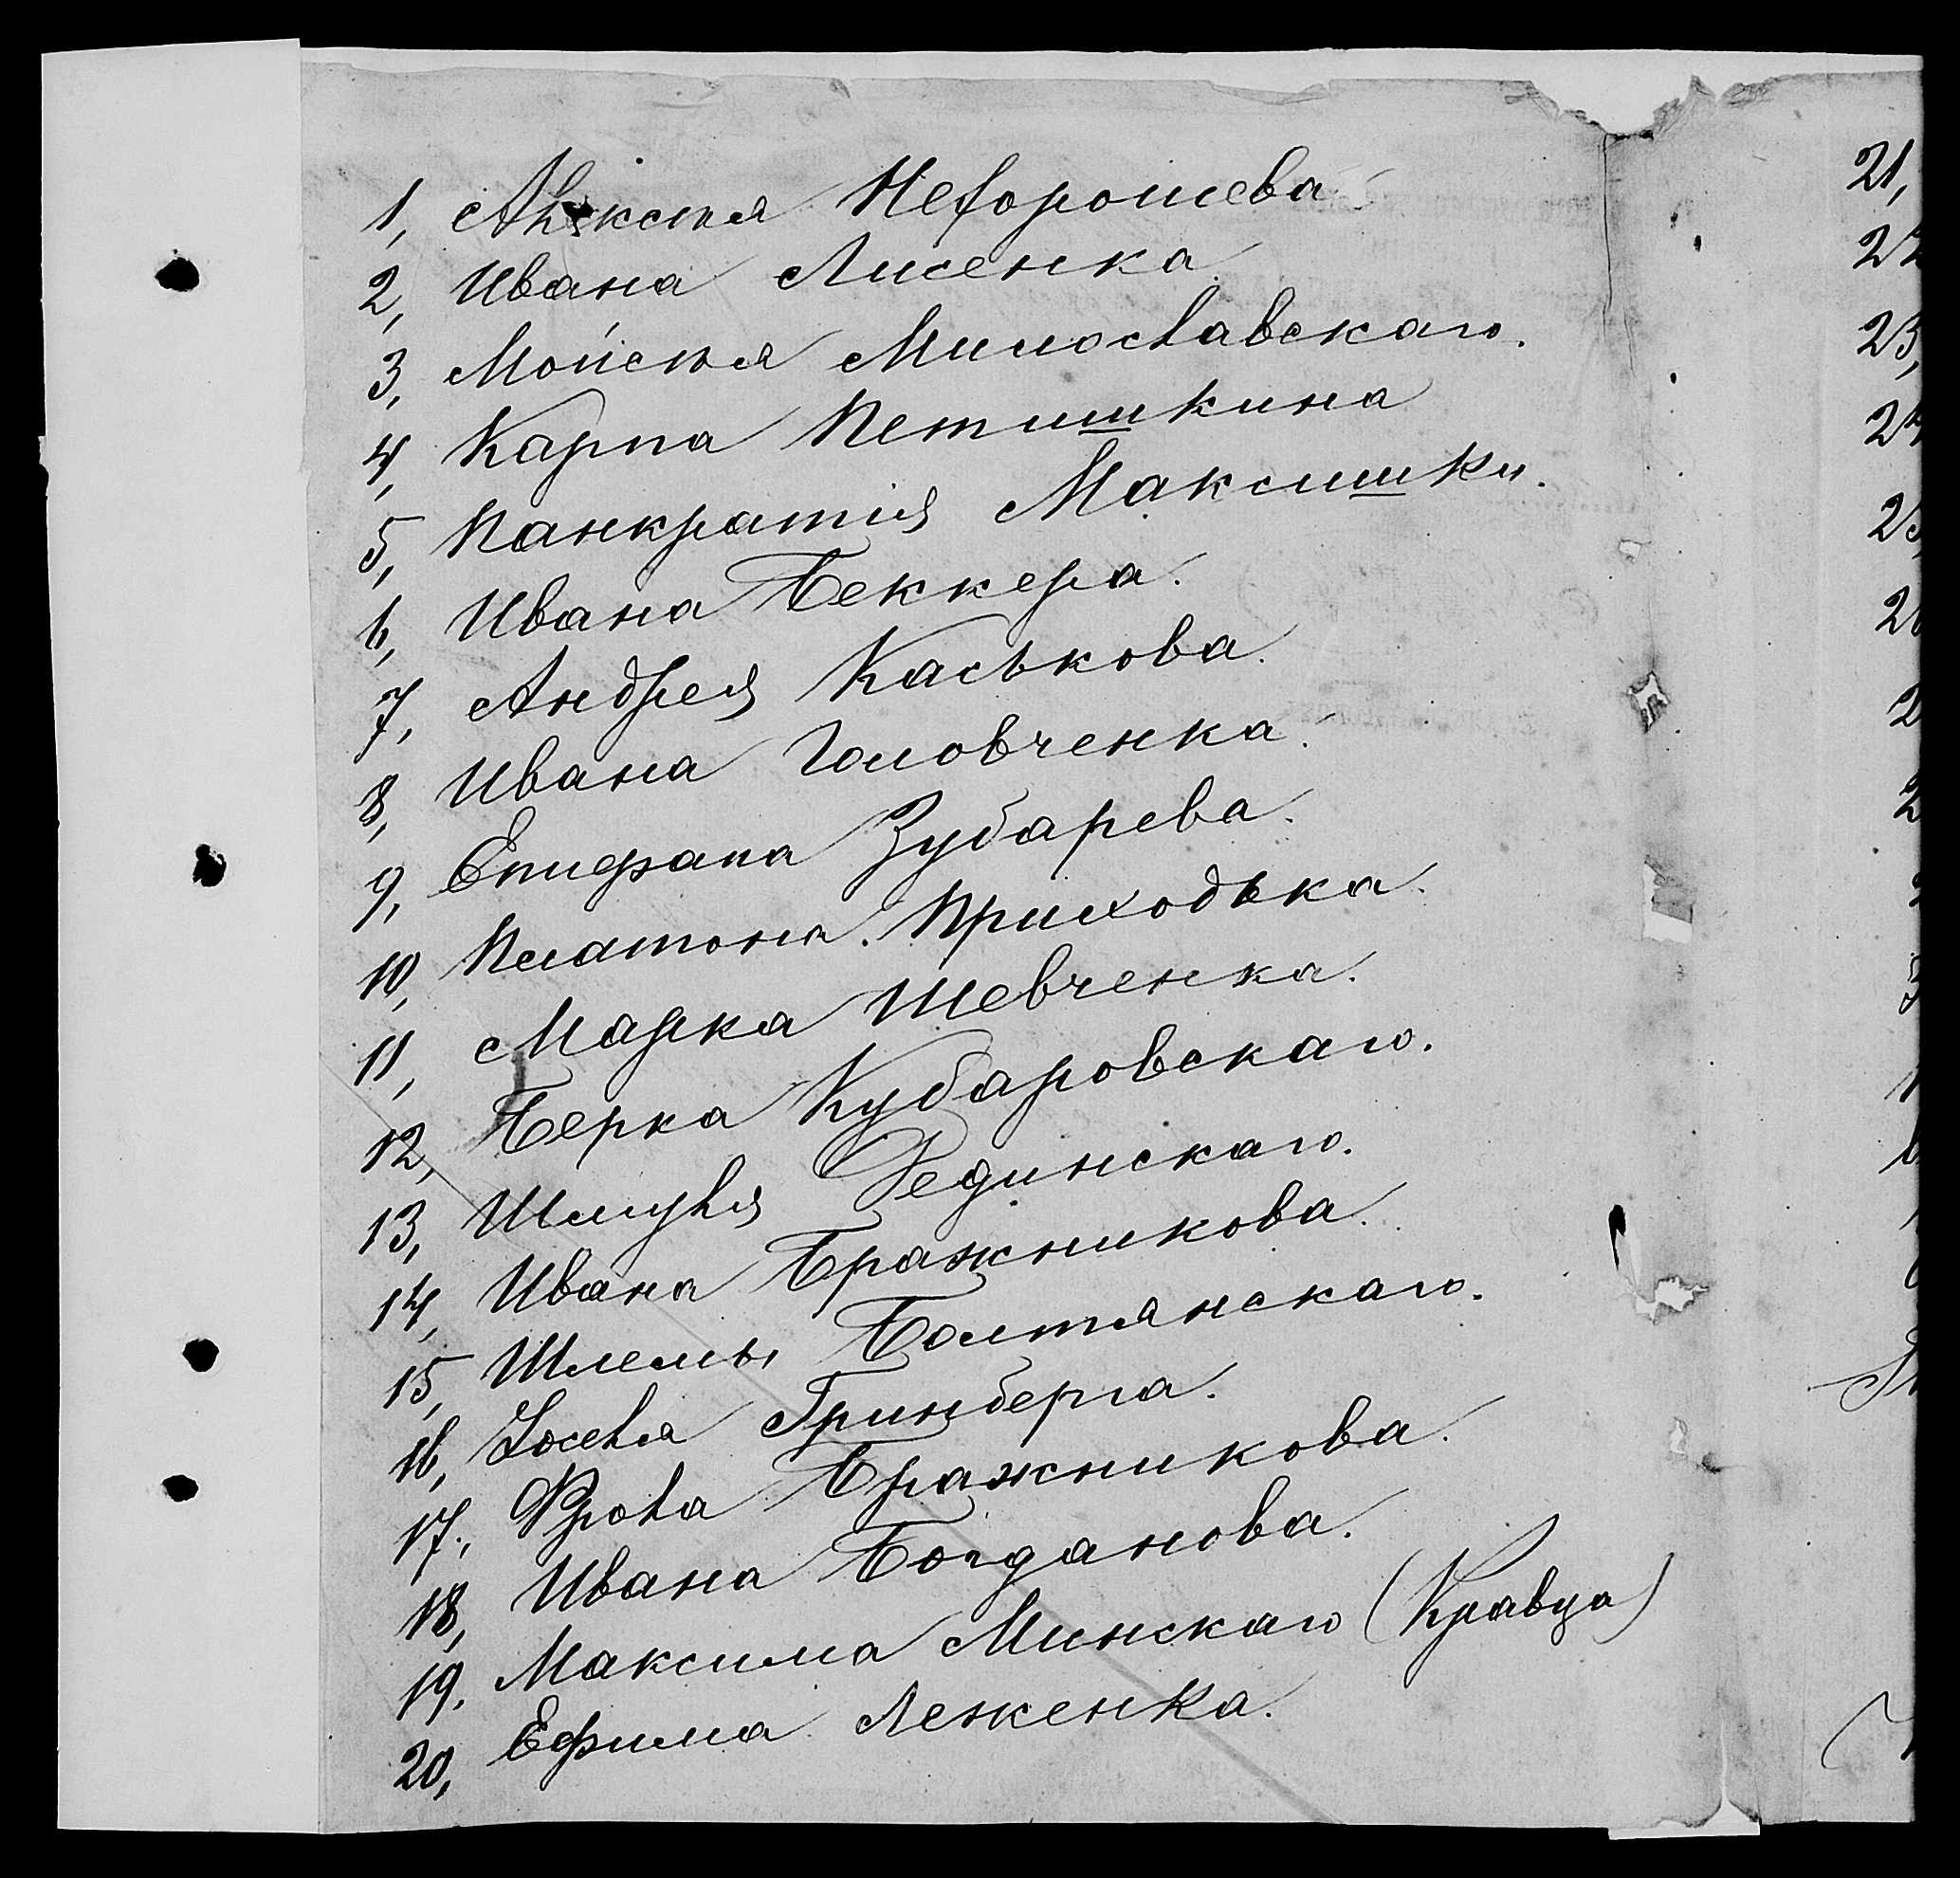 1, Алексѣя Нехорошева
2, Ивана Лисенка
3, Мойсѣя Милославскаго.
4, Карпа Петишкина
5, Панкратія Максишки.
6, Ивана Беккера.
7, Андрея Каськова.
8, Ивана Головченка.
9, Епифана Зубарева.
10, Платона Приходька.
11, Марка Шевченка.
12, Берка Кубаровскаго.
13, Шмуля Рединскаго.
14, Ивана Бражникова.
15, Шлемы Болтянскаго.
16, Іоселя Гринберга.
17, Фрола Бражникова.
18, Ивана Богданова.
19, Максима Минскаго (Кравца)
20, Ефима Леженка.
21,
23,